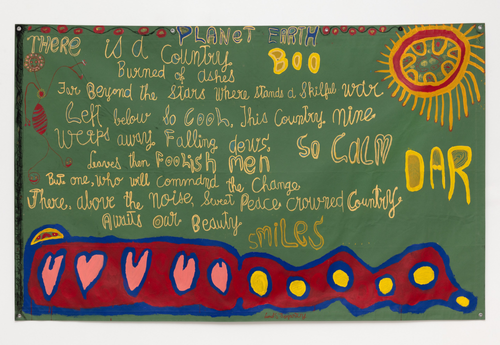 PLANET EARTH
THERE is a Country BOO
Burned of ashes
Far Beyond the Stars where stands a Skilful war
Left below so COOL, This Country nine
Weeps away Falling dews, SO CALM
Leaves then FOOLISH men DAR
But one, who will command the Change
There, above the noise, Sweet Peace crowned Country,
Awaits our Beauty
SMILES